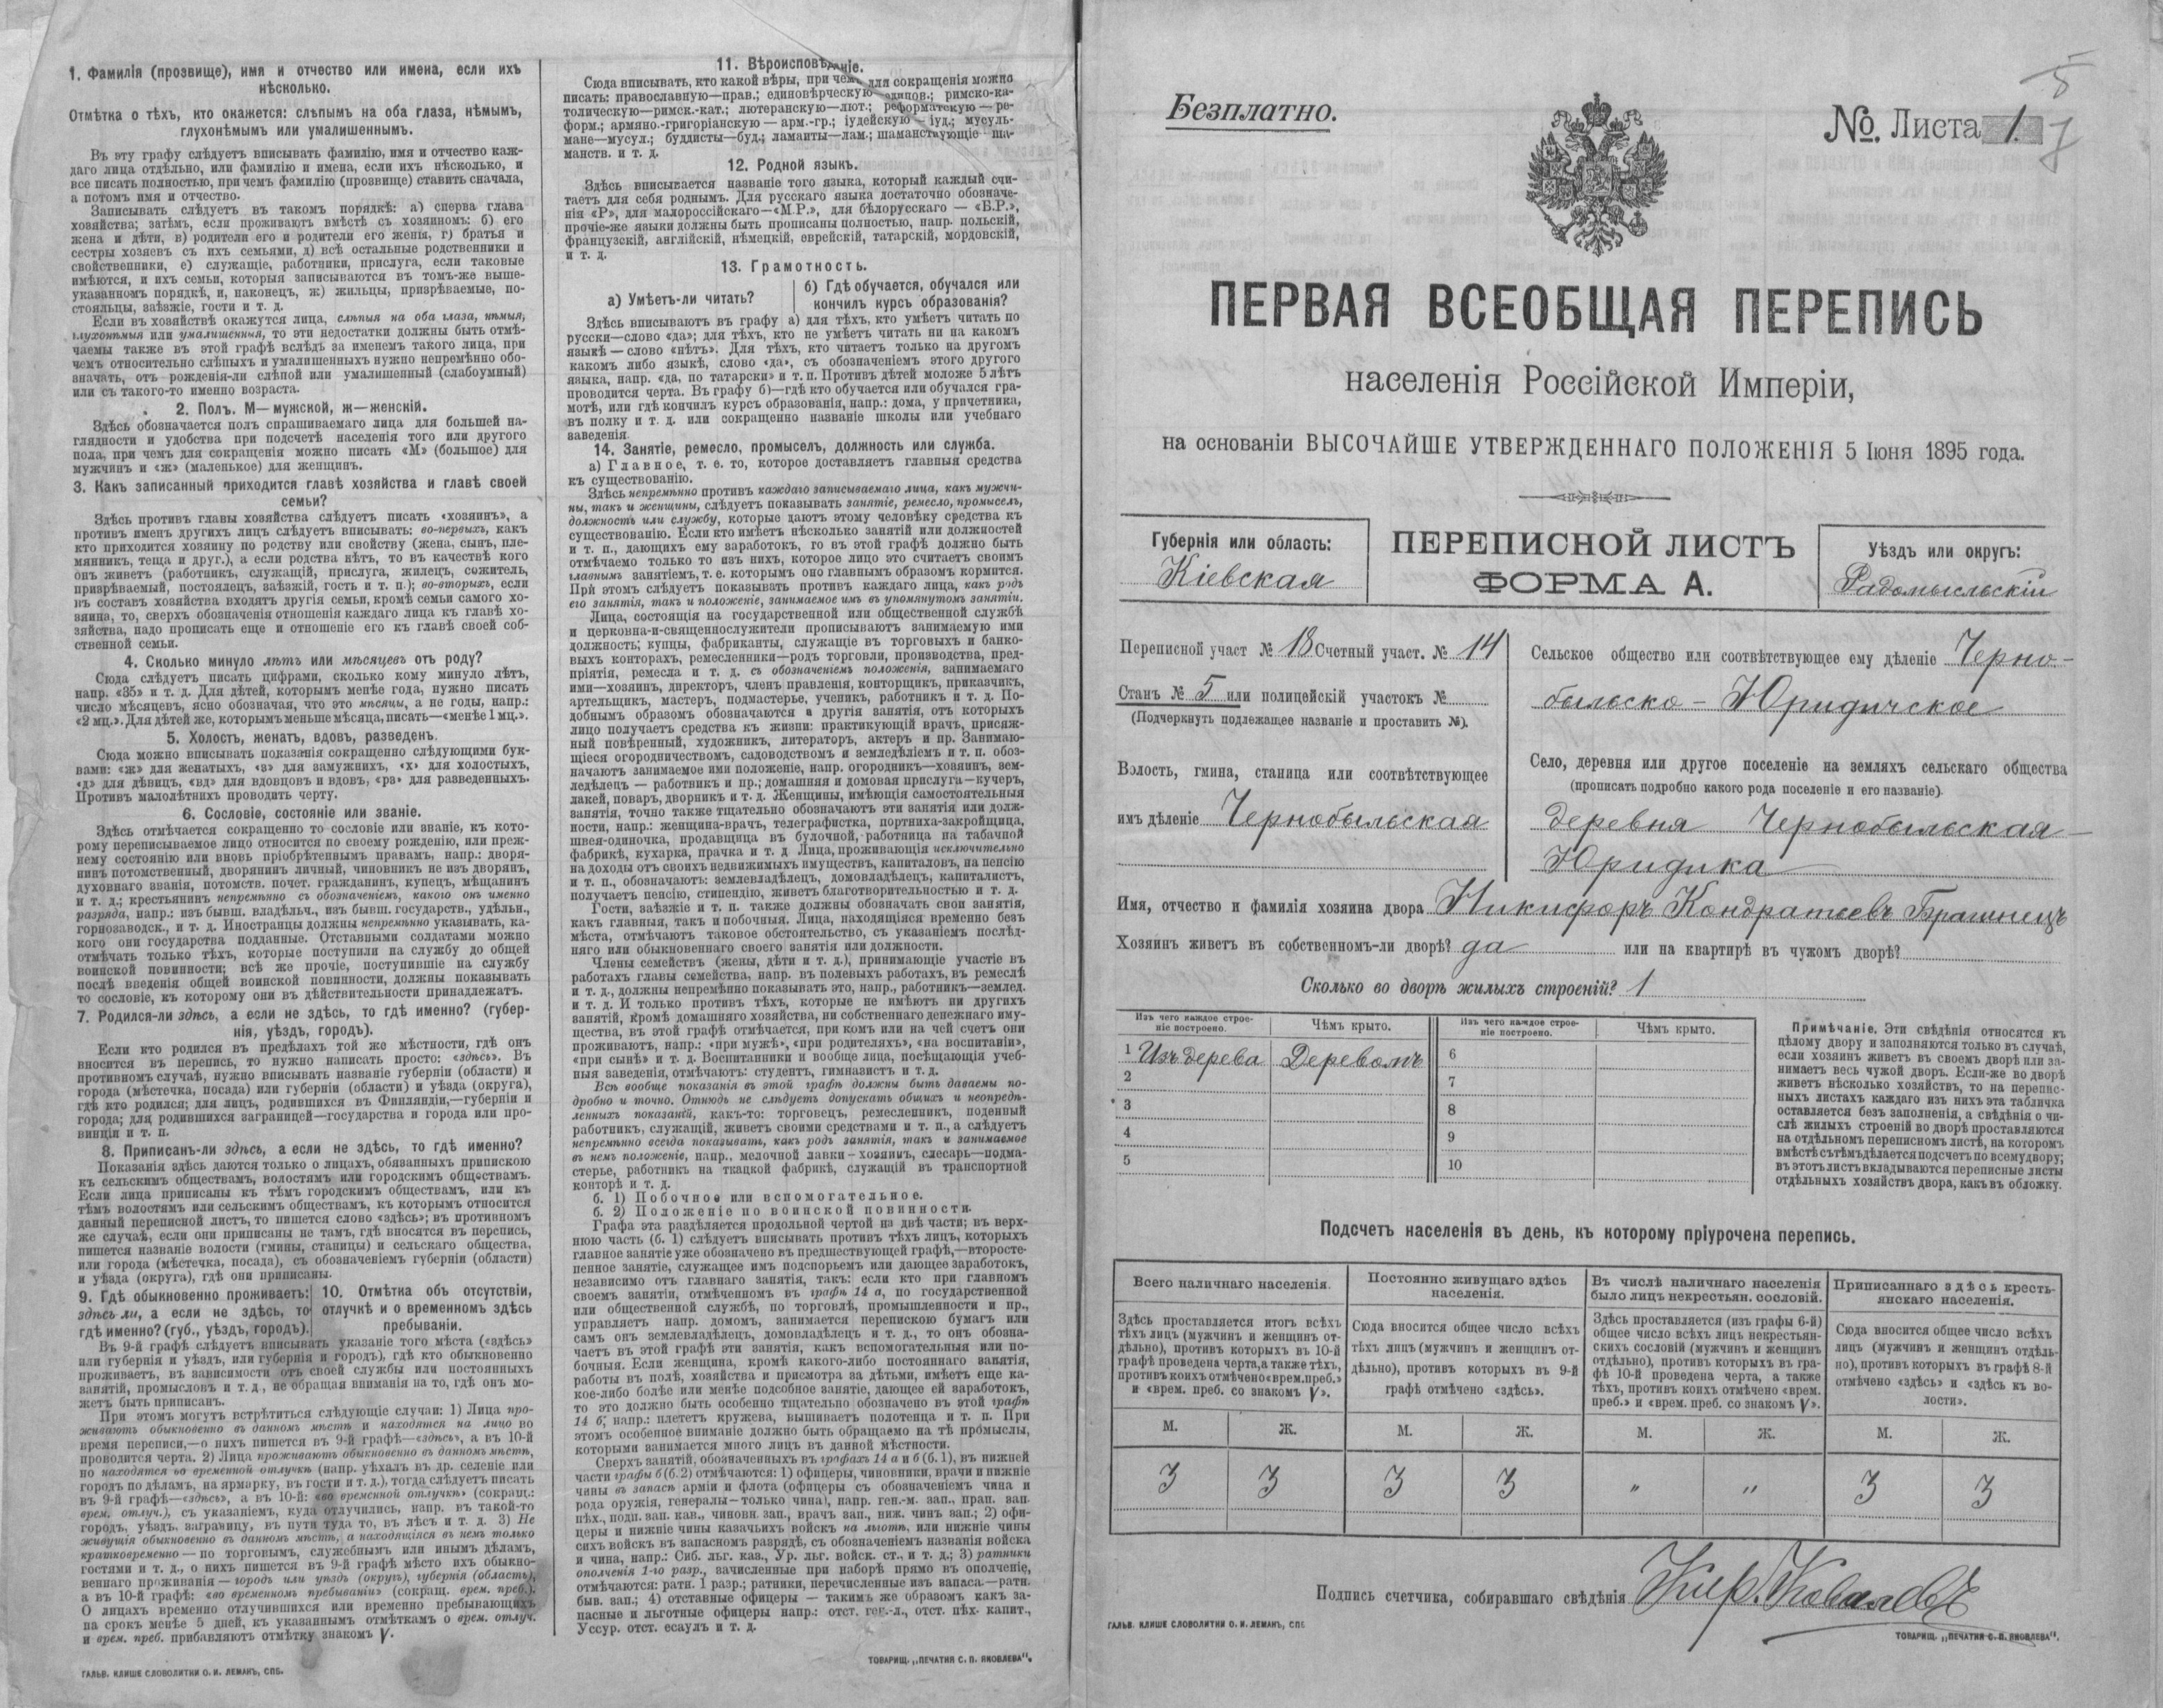 1. Фамилія (прозвище), имя и отчество или имена, если ихъ
нѣсколько.
Отмѣтка о тѣхъ, кто окажется: слѣпымъ на оба глаза, нѣмымъ,
глухонѣмымъ или умалишеннымъ.
Въ эту графу слѣдуетъ вписывать фамилію, имя и отчество каж-
даго лица отдѣльно, или фамилію и имена, если ихъ нѣсколько, и
все писать полностью, при чемъ фамилію (прозвище) ставить сначала,
а потомъ имя и отчество.
Записывать слѣдуетъ въ такомъ порядкѣ: а) сперва глава
хозяйства; затѣмъ, если проживаютъ вмѣстѣ съ хозяиномъ: б) его
жена и дѣти, в) родители его и родители его жены, г) братья и
сестры хозяевъ съ ихъ семьями, д) всѣ остальные родственники и
свойственники, е) служащіе, работники, прислуга, если таковые
имѣются, и ихъ семьи, которыя записываются въ томъ-же выше-
указанномъ порядкѣ, и, наконецъ, ж) жильцы, призрѣваемые, по-
стояльцы, заѣзжіе, гости и т. д.
Если въ хозяйствѣ окажутся лица, слѣпыя на оба глаза, нѣмыя,
глухонѣмыя или умалишенныя, то эти недостатки должны быть отмѣ-
чаемы также въ этой графѣ вслѣдъ за именемъ такого лица, при
чемъ относительно слѣпыхъ и умалишенныхъ нужно непремѣнно обо-
значать, отъ рожденія-ли слѣпой или умалишенный (слабоумный)
или съ такого-то именно возраста.
2. Полъ. М—мужской, ж—женскій.
Здѣсь обозначается полъ спрашиваемаго лица для большей на-
глядности и удобства при подсчетѣ населенія того или другого
пола, при чемъ для сокращенія можно писать «М» (большое) для
мужчинъ и «ж» (маленькое) для женщинъ.
3. Какъ записанный приходится главѣ хозяйства и главѣ своей
семьи?
Здѣсь противъ главы хозяйства слѣдуетъ писать «хозяинъ», а
противъ именъ другихъ лицъ слѣдуетъ вписывать: во-первыхъ, какъ
кто приходится хозяину по родству или свойству (жена, сынъ, пле-
мянникъ, теща и друг.), а если родства нѣтъ, то въ качествѣ кого
онъ живетъ (работникъ, служащій, прислуга, жилецъ, сожитель,
призрѣваемый, постоялецъ, заѣзжій, гость и т. п.); во-вторыхъ, если
въ составъ хозяйства входятъ другія семьи, кромѣ семьи самого хо-
зяина, то, сверхъ обозначенія отношенія каждаго лица къ главѣ хо-
зяйства, надо прописать еще и отношеніе его къ главѣ своей соб-
ственной семьи.
4. Сколько минуло лѣтъ или мѣсяцевъ отъ роду?
Сюда слѣдуетъ писать цифрами, сколько кому минуло лѣтъ,
напр. «35» и т. д. Для дѣтей, которымъ менѣе года, нужно писать
число мѣсяцевъ, ясно обозначая, что это мѣсяцы, а не годы, напр.:
«2 мц.». Для дѣтей же, которымъ меньше мѣсяца, писать—«менѣе 1 мц.».
5. Холостъ, женатъ, вдовъ, разведенъ.
Сюда можно вписывать показанія сокращенно слѣдующими бук-
вами: «ж» для женатыхъ, «з» для замужнихъ, «х» для холостыхъ,
«д» для дѣвицъ, «вд» для вдовцовъ и вдовъ, «рз» для разведенныхъ.
Противъ малолѣтнихъ проводить черту.
6. Сословіе, состояніе или званіе.
Здѣсь отмѣчается сокращенно то сословіе или званіе, къ кото-
рому переписываемое лицо относится по своему рожденію, или преж-
нему состоянію или вновь пріобрѣтеннымъ правамъ, напр.: дворя-
нинъ потомственный, дворянинъ личный, чиновникъ не изъ дворянъ,
духовнаго званія, потомств. почет. гражданинъ, купецъ, мѣщанинъ
и т. д.; крестьянинъ непремѣнно съ обозначеніемъ, какого онъ именно
разряда, напр.: изъ бывш. владѣльч., изъ бывш. государств., удѣльн.,
горнозаводск., и т. д. Иностранцы должны непремѣнно указывать, ка-
кого они государства подданные. Отставными солдатами можно
отмѣчать только тѣхъ, которые поступили на службу до общей
воинской повинности; всѣ же прочіе, поступившіе на службу
послѣ введенія общей воинской повинности, должны показывать
то сословіе, къ которому они въ дѣйствительности принадлежатъ.
7. Родился-ли здѣсь, а если не здѣсь, то гдѣ именно? (губер-
нія, уѣздъ, городъ).
Если кто родился въ предѣлахъ той же мѣстности, гдѣ онъ
вносится въ перепись, то нужно написать просто: «здѣсь». Въ
противномъ случаѣ, нужно вписывать названіе губерніи (области) и
города (мѣстечка, посада) или губерніи (области) и уѣзда (округа),
гдѣ кто родился; для лицъ, родившихся въ Финляндіи,—губерніи и
города; для родившихся заграницей—государства и города или про-
винціи и т. п.
8. Приписанъ-ли здѣсь, а если не здѣсь, то гдѣ именно?
Показанія здѣсь даются только о лицахъ, обязанныхъ припискою
къ сельскимъ обществамъ, волостямъ или городскимъ обществамъ.
Если лица приписаны къ тѣмъ городскимъ обществамъ, или къ
тѣмъ волостямъ или сельскимъ обществамъ, къ которымъ относится
данный переписной листъ, то пишется слово «здѣсь»; въ противномъ
же случаѣ, если они приписаны не тамъ, гдѣ вносятся въ перепись,
пишется названіе волости (гмины, станицы) и сельскаго общества,
или города (мѣстечка, посада), съ обозначеніемъ губерніи (области)
и уѣзда (округа), гдѣ они приписаны.
9. Гдѣ обыкновенно проживаетъ:
здѣсь ли, а если не здѣсь, то
гдѣ именно? (губ., уѣздъ, городъ).
10. Отмѣтка объ отсутствіи,
отлучкѣ и о временномъ здѣсь
пребываніи.
Въ 9-й графѣ слѣдуетъ вписывать указаніе того мѣста («здѣсь»
или губернія и уѣздъ, или губернія и городъ), гдѣ кто обыкновенно
проживаетъ, въ зависимости отъ своей службы или постоянныхъ
занятій, промысловъ и т. д., не обращая вниманія на то, гдѣ онъ мо-
жетъ быть приписанъ.
При этомъ могутъ встрѣтиться слѣдующіе случаи: 1) Лица про-
живаютъ обыкновенно въ данномъ мѣстѣ и находятся на лицо во
время переписи,—о нихъ пишется въ 9-й графѣ—«здѣсь», а въ 10-й
проводится черта. 2) Лица проживаютъ обыкновенно въ данномъ мѣстѣ,
но находятся во временной отлучкѣ (напр. уѣхалъ въ др. селеніе или
городъ по дѣламъ, на ярмарку, въ гости и т. д.), тогда слѣдуетъ писать
въ 9-й графѣ—«здѣсь», а въ 10-й: «во временной отлучкѣ» (сокращ.:
врем. отлуч.), съ указаніемъ, куда отлучились, напр. въ такой-то
городъ, уѣздъ, заграницу, въ пути туда то, въ лѣсъ и т. д. 3) Не
живущія обыкновенно въ данномъ мѣстѣ, а находящіяся въ немъ только
кратковременно — по торговымъ, служебнымъ или инымъ дѣламъ,
гостями и т. д., о нихъ пишется въ 9-й графѣ мѣсто ихъ обыкно-
веннаго проживанія—городъ или уѣздъ (округъ), губернія (область),
а въ 10-й графѣ: «во временномъ пребываніи» (сокращ. врем. преб.).
О лицахъ временно отлучившихся или временно пребывающихъ
на срокъ менѣе 5 дней, къ указаннымъ отмѣткамъ о врем. отлуч.
и врем. преб. прибавляютъ отмѣтку знакомъ V.
ГАЛЬВ. КЛИШЕ СЛОВОЛИТНИ О. И. ЛЕМАНЪ, СПБ.
11. Вѣроисповѣданіе.
Сюда вписывать, кто какой вѣры, при чемъ для сокращенія можно
писать: православную—прав.; единовѣрческую—единов.; римско-ка-
толическую—римск.-кат.; лютеранскую—лют.; реформатскую—ре-
форм.; армяно.-григоріанскую—арм.-гр.; іудейскую—іуд.; мусуль-
мане—мусул.; буддисты—буд.; ламаиты—лам.; шаманствующіе—ша-
манств. и т. д.
12. Родной языкъ.
Здѣсь вписывается названіе того языка, который каждый счи-
таетъ для себя роднымъ. Для русскаго языка достаточно обозначе-
нія «Р», для малороссійскаго—«М.Р.», для бѣлорусскаго — «Б.Р.»,
прочіе-же языки должны быть прописаны полностью, напр. польскій,
французскій, англійскій, нѣмецкій, еврейскій, татарскій, мордовскій,
и т. д.
13. Грамотность.
а) Умѣетъ-ли читать?
б) Гдѣ обучается, обучался или
кончилъ курсъ образованія?
Здѣсь вписываютъ въ графу а) для тѣхъ, кто умѣетъ читать по
русски—слово «да»; для тѣхъ, кто не умѣетъ читать ни на какомъ
языкѣ—слово «нѣтъ». Для тѣхъ, кто читаетъ только на другомъ
какомъ либо языкѣ, слово «да», съ обозначеніемъ этого другого
языка, напр. «да, по татарски» и т. п. Противъ дѣтей моложе 5 лѣтъ
проводится черта. Въ графу б)—гдѣ кто обучается или обучался гра-
мотѣ, или гдѣ кончилъ курсъ образованія, напр.: дома, у причетника,
въ полку и т. д. или сокращенно названіе школы или учебнаго
заведенія.
14. Занятіе, ремесло, промыселъ, должность или служба.
а) Главное, т. е. то, которое доставляетъ главныя средства
къ существованію.
Здѣсь непремѣнно противъ каждаго записываемаго лица, какъ мужчи-
ны, такъ и женщины, слѣдуетъ показывать занятіе, ремесло, промыселъ,
должность или службу, которые даютъ этому человѣку средства къ
существованію. Если кто имѣетъ нѣсколько занятій или должностей
и т. п., дающихъ ему заработокъ, то въ этой графѣ должно быть
отмѣчаемо только то изъ нихъ, которое лицо это считаетъ своимъ
главнымъ занятіемъ, т. е. которымъ оно главнымъ образомъ кормится.
При этомъ слѣдуетъ показывать противъ каждаго лица, какъ родъ
его занятія, такъ и положеніе, занимаемое имъ въ упомянутомъ занятіи.
Лица, состоящія на государственной или общественной службѣ
и церковно-и-священнослужители прописываютъ занимаемую ими
должность; купцы, фабриканты, служащіе въ торговыхъ и банко-
выхъ конторахъ, ремесленники—родъ торговли, производства, пред-
пріятія, ремесла и т. д. съ обозначеніемъ положенія, занимаемаго
ими—хозяинъ, директоръ, членъ правленія, конторщикъ, приказчикъ,
артельщикъ, мастеръ, подмастерье, ученикъ, работникъ и т. д. По-
добнымъ образомъ обозначаются и другія занятія, отъ которыхъ
лицо получаетъ средства къ жизни: практикующій врачъ, присяж-
ный повѣренный, художникъ, литераторъ, актеръ и пр. Занимаю-
щіеся огородничествомъ, садоводствомъ и земледѣліемъ и т. п. обоз-
начаютъ занимаемое ими положеніе, напр. огородникъ—хозяинъ, зем-
ледѣлецъ — работникъ и пр.; домашняя и домовая прислуга—кучеръ,
лакей, поваръ, дворникъ и т. д. Женщины, имѣющія самостоятельныя
занятія, точно также тщательно обозначаютъ эти занятія или долж-
ности, напр.: женщина-врачъ, телеграфистка, портниха-закройщица,
швея-одиночка, продавщица въ булочной, работница на табачной
фабрикѣ, кухарка, прачка и т. д. Лица, проживающія исключительно
на доходы отъ своихъ недвижимыхъ имуществъ, капиталовъ, на пенсію
и т. п., обозначаютъ: землевладѣлецъ, домовладѣлецъ, капиталистъ,
получаетъ пенсію, стипендію, живетъ благотворительностью и т. д.
Гости, заѣзжіе и т. п. также должны обозначать свои занятія,
какъ главныя, такъ и побочныя. Лица, находящіяся временно безъ
мѣста, отмѣчаютъ таковое обстоятельство, съ указаніемъ послѣд-
няго или обыкновеннаго своего занятія или должности.
Члены семействъ (жены, дѣти и т. д.), принимающіе участіе въ
работахъ главы семейства, напр. въ полевыхъ работахъ, въ ремеслѣ
и т. д., должны непремѣнно показывать это, напр., работникъ—землед.
и т. д. И только противъ тѣхъ, которые не имѣютъ ни другихъ
занятій, кромѣ домашняго хозяйства, ни собственнаго денежнаго иму-
щества, въ этой графѣ отмѣчается, при комъ или на чей счетъ они
проживаютъ, напр.: «при мужѣ», «при родителяхъ», «на воспитаніи»,
«при сынѣ» и т. д. Воспитанники и вообще лица, посѣщающія учеб-
ныя заведенія, отмѣчаютъ: студентъ, гимназистъ и т. д.
Всѣ вообще показанія въ этой графѣ должны быть даваемы по-
дробно и точно. Отнюдь не слѣдуетъ допускать общихъ и неопредѣ-
ленныхъ показаній, какъ-то: торговецъ, ремесленникъ, поденный
работникъ, служащій, живетъ своими средствами и т. п., а слѣдуетъ
непремѣнно всегда показывать, какъ родъ занятія, такъ и занимаемое
въ немъ положеніе, напр., мелочной лавки—хозяинъ, слесарь—подма-
стерье, работникъ на ткацкой фабрикѣ, служащій въ транспортной
конторѣ и т. д.
б. 1) Побочное или вспомогательное.
б. 2) Положеніе по воинской повинности.
Графа эта раздѣляется продольной чертой на двѣ части; въ верх-
нюю часть (б. 1) слѣдуетъ вписывать противъ тѣхъ лицъ, которыхъ
главное занятіе уже обозначено въ предшествующей графѣ,—второсте-
пенное занятіе, служащее имъ подспорьемъ или дающее заработокъ,
независимо отъ главнаго занятія, такъ: если кто при главномъ
своемъ занятіи, отмѣченномъ въ графѣ 14 а, по государственной
или общественной службѣ, по торговлѣ, промышленности и пр.,
управляетъ напр. домомъ, занимается перепискою бумагъ или
самъ онъ землевладѣлецъ, домовладѣлецъ и т. д., то онъ обозна-
чаетъ въ этой графѣ эти занятія, какъ вспомогательныя или по-
бочныя. Если женщина, кромѣ какого-либо постояннаго занятія,
работы въ полѣ, хозяйства и присмотра за дѣтьми, имѣетъ еще ка-
кое-либо болѣе или менѣе подсобное занятіе, дающее ей заработокъ,
то это должно быть особенно тщательно обозначено въ этой графѣ
14 б, напр.: плететъ кружева, вышиваетъ полотенца и т. п. При
этомъ особенное вниманіе должно быть обращаемо на тѣ промыслы,
которыми занимается много лицъ въ данной мѣстности.
Сверхъ занятій, обозначенныхъ въ графахъ 14 а и б (б. 1), въ нижней
части графы б (б.2) отмѣчаются: 1) офицеры, чиновники, врачи и нижніе
чины въ запасѣ арміи и флота (офицеры съ обозначеніемъ чина и
рода оружія, генералы—только чина), напр. ген.-м. зап., прап. зап.
пѣх., подп. зап. кав., чиновн. зап., врачъ зап., ниж. чинъ зап.; 2) офи-
церы и нижніе чины казачьихъ войскъ на льготѣ, или нижніе чины
сихъ войскъ въ запасномъ разрядѣ, съ обозначеніемъ названія войска
и чина, напр.: Сиб. льг. каз., Ур. льг. войск. ст., и т. д.; 3) ратники
ополченія 1-го разр., зачисленные при наборѣ прямо въ ополченіе,
отмѣчаются: ратн. 1 разр.; ратники, перечисленные изъ запаса.—ратн.
быв. зап.; 4) отставные офицеры — такимъ же образомъ какъ за-
пасные и льготные офицеры напр.: отст. ген.-л., отст. пѣх. капит.,
Уссур. отст. есаулъ и т. д.
ТОВАРИЩ. „ПЕЧАТНЯ С. П. ЯКОВЛЕВА“.
Безплатно.
5
№ Листа 1.
ПЕРВАЯ ВСЕОБЩАЯ ПЕРЕПИСЬ
населенія Россійской Имперіи,
на основаніи ВЫСОЧАЙШЕ УТВЕРЖДЕННАГО ПОЛОЖЕНІЯ 5 Іюня 1895 года.
Губернія или область:
Кіевская
ПЕРЕПИСНОЙ ЛИСТЪ
ФОРМА А.
Уѣздъ или округъ:
Радомысльскій
Переписной участ № 18 Счетный участ. № 14
Станъ № 5 или полицейскій участокъ №
(Подчеркнуть подлежащее названіе и проставить №).
Волость, гмина, станица или соотвѣтствующее
имъ дѣленіе Чернобыльская
Сельское общество или соотвѣтствующее ему дѣленіе Черно-
быльско-Юридичское
Село, деревня или другое поселеніе на земляхъ сельскаго общества
(прописать подробно какого рода поселеніе и его названіе).
деревня Чернобыльская-
Юридика
Имя, отчество и фамилія хозяина двора Никифоръ Кондратьевъ Брашнецъ
Хозяинъ живетъ въ собственномъ-ли дворѣ? да или на квартирѣ въ чужомъ дворѣ?
Сколько во дворѣ жилыхъ строеній? 1
Изъ чего каждое строе-
ніе построено.
Чѣмъ крыто.
Изъ чего каждое строе-
ніе построено.
Чѣмъ крыто.
1 Изъ дерева Деревомъ 6
2 7
3 8
4 9
5 10
Примѣчаніе. Эти свѣдѣнія относятся къ
цѣлому двору и заполняются только въ случаѣ,
если хозяинъ живетъ въ своемъ дворѣ или за-
нимаетъ весь чужой дворъ. Если-же во дворѣ
живетъ нѣсколько хозяйствъ, то на перепис-
ныхъ листахъ каждаго изъ нихъ эта табличка
оставляется безъ заполненія, а свѣдѣнія о чи-
слѣ жилыхъ строеній во дворѣ проставляются
на отдѣльномъ переписномъ листѣ, на которомъ
вмѣстѣ съ тѣмъ дѣлается подсчетъ по всему двору;
въ этотъ листъ вкладываются переписные листы
отдѣльныхъ хозяйствъ двора, какъ въ обложку.
Подсчетъ населенія въ день, къ которому пріурочена перепись.
Всего наличнаго населенія.
Постоянно живущаго здѣсь
населенія.
Въ числѣ наличнаго населенія
было лицъ некрестьян. сословій.
Приписаннаго здѣсь кресть-
янскаго населенія.
Здѣсь проставляется итогъ всѣхъ
тѣхъ лицъ (мужчинъ и женщинъ от-
дѣльно), противъ которыхъ въ 10-й
графѣ проведена черта, а также тѣхъ,
противъ коихъ отмѣчено «врем. преб.»
и «врем. преб. со знакомъ V».
Сюда вносится общее число всѣхъ
тѣхъ лицъ (мужчинъ и женщинъ от-
дѣльно), противъ которыхъ въ 9-й
графѣ отмѣчено «здѣсь».
Здѣсь проставляется (изъ графы 6-й)
общее число всѣхъ лицъ некрестьян-
скихъ сословій (мужчинъ и женщинъ
отдѣльно), противъ которыхъ въ гра-
фѣ 10-й проведена черта, а также
тѣхъ, противъ коихъ отмѣчено «врем.
преб.» и «врем. преб. со знакомъ V».
Сюда вносится общее число всѣхъ
лицъ (мужчинъ и женщинъ отдѣль-
но), противъ которыхъ въ графѣ 8-й
отмѣчено «здѣсь» и «здѣсь къ во-
лости».
М. Ж. М. Ж. М. Ж. М. Ж.
3 3 3 3 " " 3 3
Подпись счетчика, собиравшаго свѣдѣнія
ГАЛЬВ. КЛИШЕ СЛОВОЛИТНИ О. И. ЛЕМАНЪ, СПБ
ТОВАРИЩ. „ПЕЧАТНЯ С. П. ЯКОВЛЕВА“.